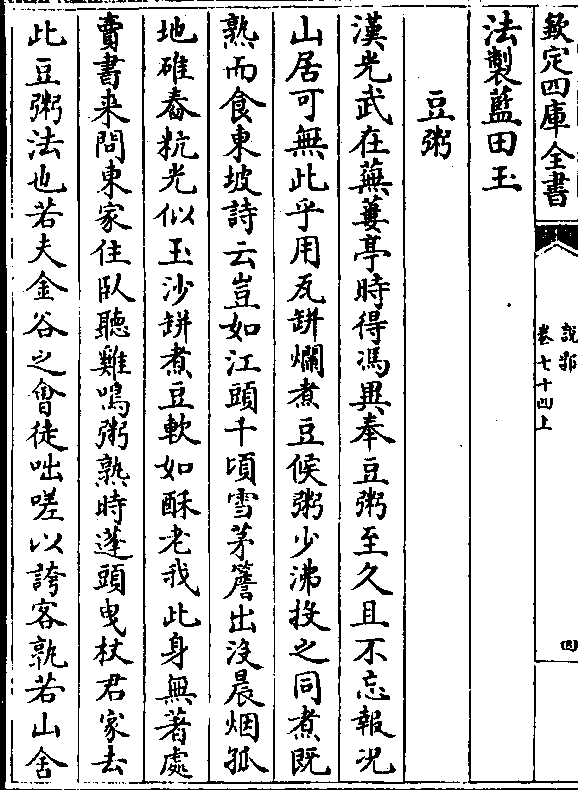 欽定四庫全書
說郛
卷七十四上
四
法製藍田玉
豆粥
漢光武在蕪蔞亭時得馮異奉豆粥至久且不忘報况
山居可無此乎用瓦缾爛煮豆候粥少沸投之同煮既
熟而食東坡詩云豈如江頭千頃雪茅簷出沒晨烟孤
地碓舂秔光似玉沙缾煮豆軟如酥老我此身無著處
賣書来問東家住卧聽雞鳴粥熟時蓬頭曳杖君家去
此豆粥法也若夫金谷之會徒咄嗟以誇客孰若山舍